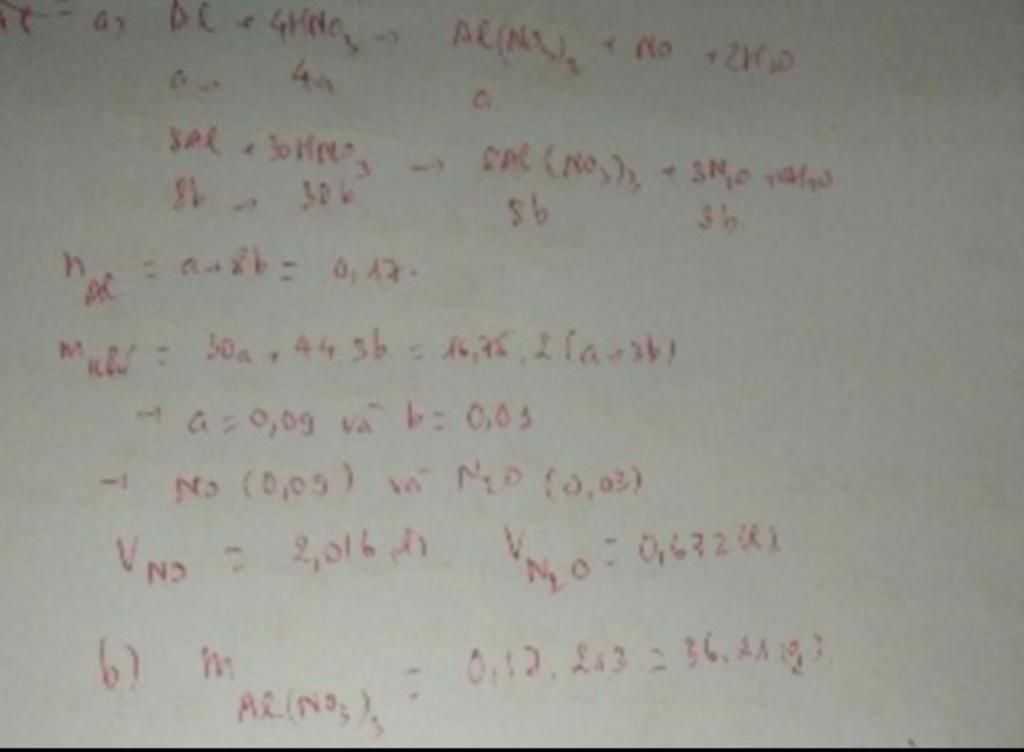 a, Al + 4HNO₃ → Al(NO₃)₃ + NO + 2H₂O
a → 4a a
8Al + 30HNO₃ → 8Al(NO₃)₃ + 3N₂O + H₂O
8b → 30b 8b 3b
n Al = a + 8b = 0,17.
m khí = 30a + 44.3b = 16,75.2(a+3b)
→ a = 0,09 và b = 0,01
→ NO (0,09) và N₂O (0,03)
V NO = 2,016 (l) V N₂O = 0,672 (l)
b) m Al(NO₃)₃ = 0,17.213 = 36.21 (g)